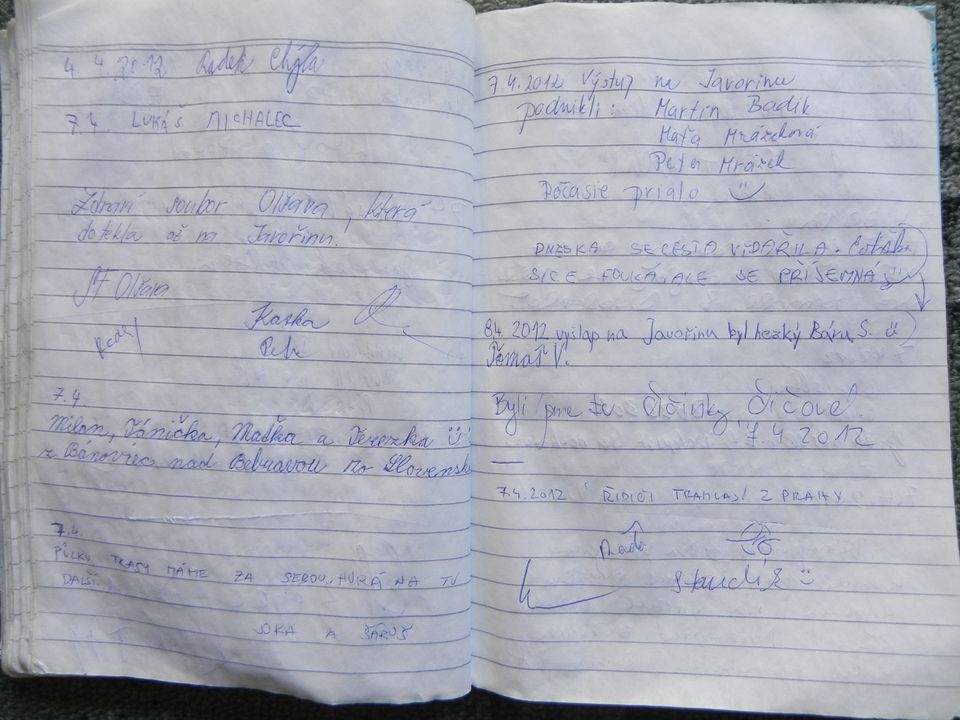 4. 4. 2012 Radek Chýla
7.4. LUKÁŠ MICHALEC
Zdraví soubor Olšava, která
dotekla až na Javořinu.
Olšava
Katka
Petr
7.4.
Milan, Vánička, Maťka a Terezka
z Bánoviec nad Bebravou zo Slovenska
7.4.
PŮLKU TRASY MÁME ZA SEBOU. HURÁ NA TU
DALŠÍ
JOKA A ŠÁRUŠ
7.4.2012 Výstup na Javorinu
podnikli: Martin Badik
Maťa Mrázeková
Peter Mrázek
Počasie prialo
DNESKA SE CESTA VYDAŘILA.
SICE FOUKÁ, ALE SE PŘÍJEMNÁ
8.4. 2012 vyšlap na Javořinu byl hezký Bára S.
Tomáš V.
Byli jsme tu Čičinky, Čičové.
7.4.2012
7.4.2012 ŘIDIČI TRAMVAJÍ Z PRAHY
Radí
Standík